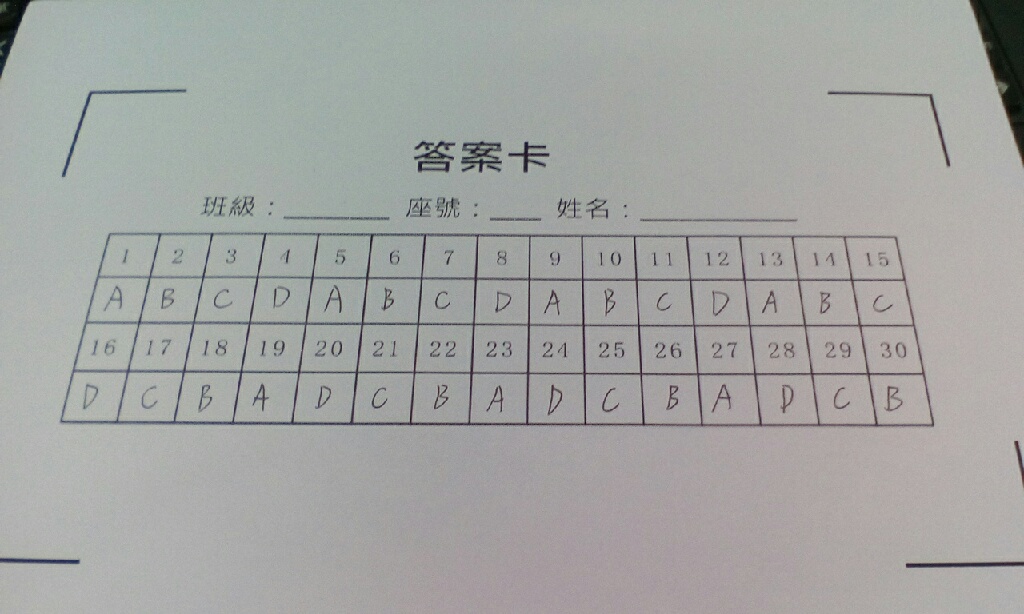 答案卡
班級：________ 座號：____ 姓名：____________
1 2 3 4 5 6 7 8 9 10 11 12 13 14 15
A B C D A B C D A B C D A B C
16 17 18 19 20 21 22 23 24 25 26 27 28 29 30
D C B A D C B A D C B A D C B